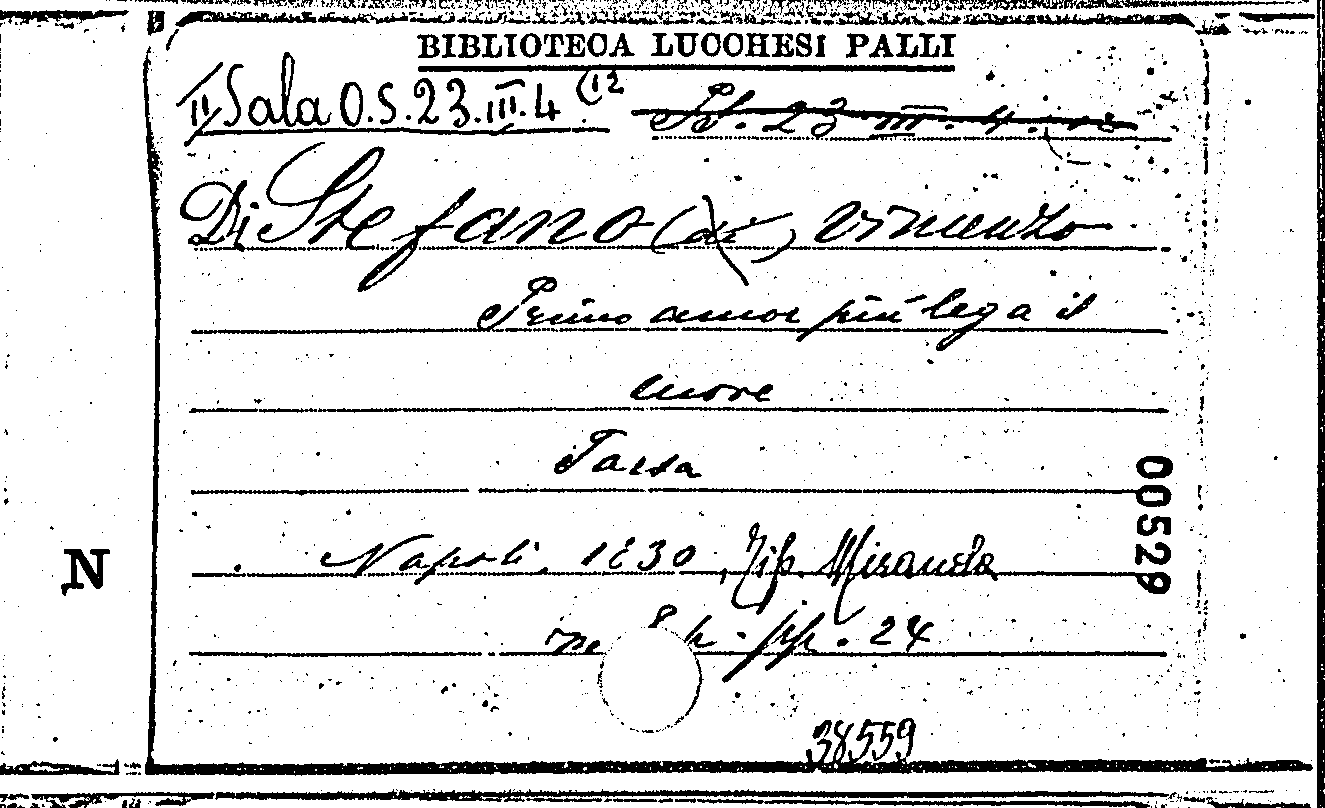 BIBLIOTECA LUCCHESI PALLI
II Sala O.S.23.III.4 (12
23 III. 4. 12
Di Stefano (di) Vincenzo
Primo amor più lega il
cuore
Farsa
Napoli, 1830, Tip. Miranda
in 8 p. pp. 24
38559
N
00529